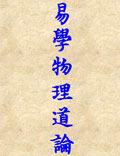 易學物理道論